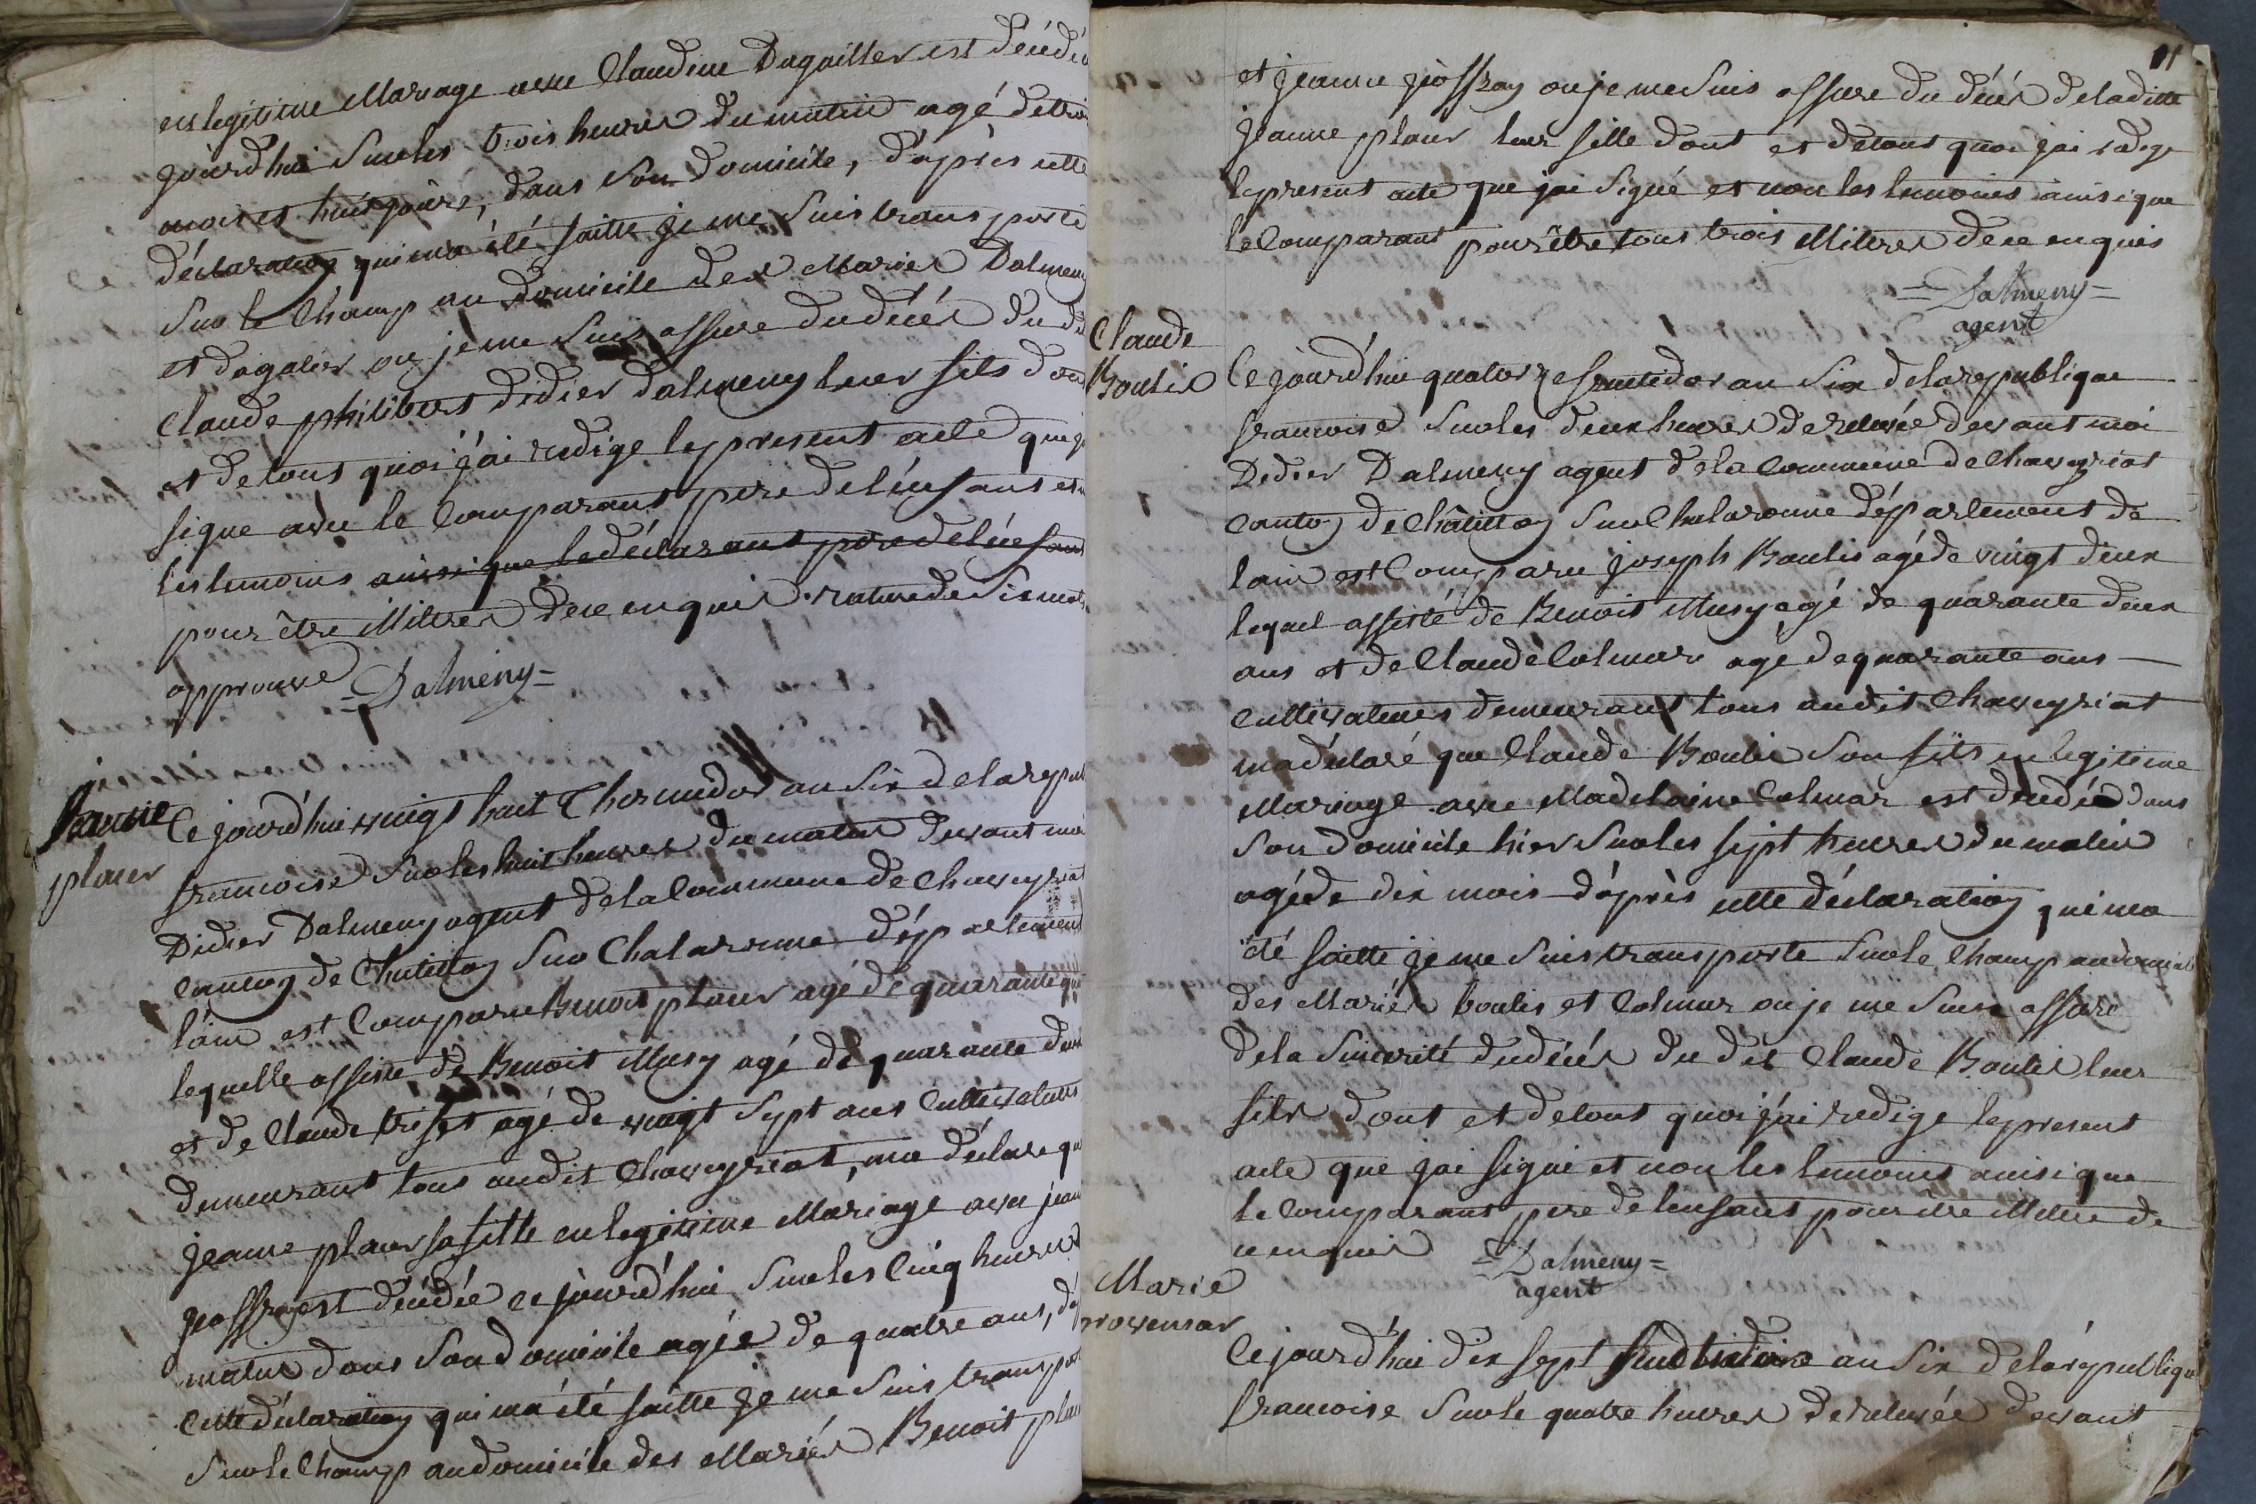 en legitime Mariage avec Claudine Dagallier est décédé
jourd'hui sur les trois heures du matin agé de trois
mois et huit jours, dans son domicile, d'après cette
déclaration qui ma été faitte je me suis transporté
sur le Champ au domicile des Mariés Dalmeny
et dagalier ou je me suis assure du décés du dit
Claude philibert didier dalmeny leur fils dont
et de tout quoi j'ai redige le present acte que j'ai
signe avec le Comparant pere de l'énfant et non
les temoins ainsi que le déclarant pere de l'énfant
pour être illitres de ce enquis. rature de six mots
approuve =Dalmeny=
Jeanne
plaur
Ce jourd'hui vingt huit Thermidor an Six de la repub
francoise sur les huit heures du matin devant moi
Didier Dalmeny agent de la Commune de Chaveyriat
Canton de Chatillon sur Chalaronne département
lain est Comparu Benoit plaur agé de quarante
lequelle assiste de Benoit Musy agé de quarante deux
et de Claude agé de vingt sept ans Cultivateurs
demeurant tous audit Chaveyriat, ma déclare que
jeanne plaur sa fille en legitime Mariage avec jeanne
est décédée ce jourd'hui sur les Cinq heures
matin dans son domicile agée de quatre ans, d'a
Cette déclaration qui ma été faitte je me suis transpor
sur le Champ au domicile des Mariés Benoit plaur
11
et jeanne joffray ou je me suis assure du décés de la ditte
jeanne plaur leur fille dont et de tout quoi j'ai redige
le present acte que j'ai signé et non les temoins ainsi que
le Comparant pour être tous trois illitres de ce enquis
=Dalmeny=
agent
Claude
Boulis
Ce jourd'hui quatorze fructidor an Six de la republique
francoise sur les deux heures de relevée devant moi
Didier Dalmeny agent de la Commune de Chaveyriat
Canton de Châtillon sur Chalaronne département de
lain est Comparu joseph Boulis agé de vingt deux
lequel assisté de Benoit Musy agé de quarante deux
ans et de Claude Colmar agé de quarante ans
Cultivateurs demeurant tous audit Chaveyriat
ma déclaré que Claude Boulis son fils en legitime
Mariage avec Madelaine Colmar est décédé dans
son domicile hier sur les sept heures du matin
agé de dix mois d'après cette déclaration qui ma
été faitte je me suis transporte sur le Champ au domicile
des Mariés boulis et Colmar ou je me suis assuré
de la sincerité du décés du dit Claude Boulis leur
fils dont et de tout quoi j'ai redige le present
acte que j'ai signé et non les temoins ainsi que
le Comparant pere de lenfant pour être illitre de
ce enquis =Dalmeny=
agent
Marie
provensar
Ce jourd'hui dix sept fructidor an Six de la républiqu
francoise sur le quatre heures de relevée devant